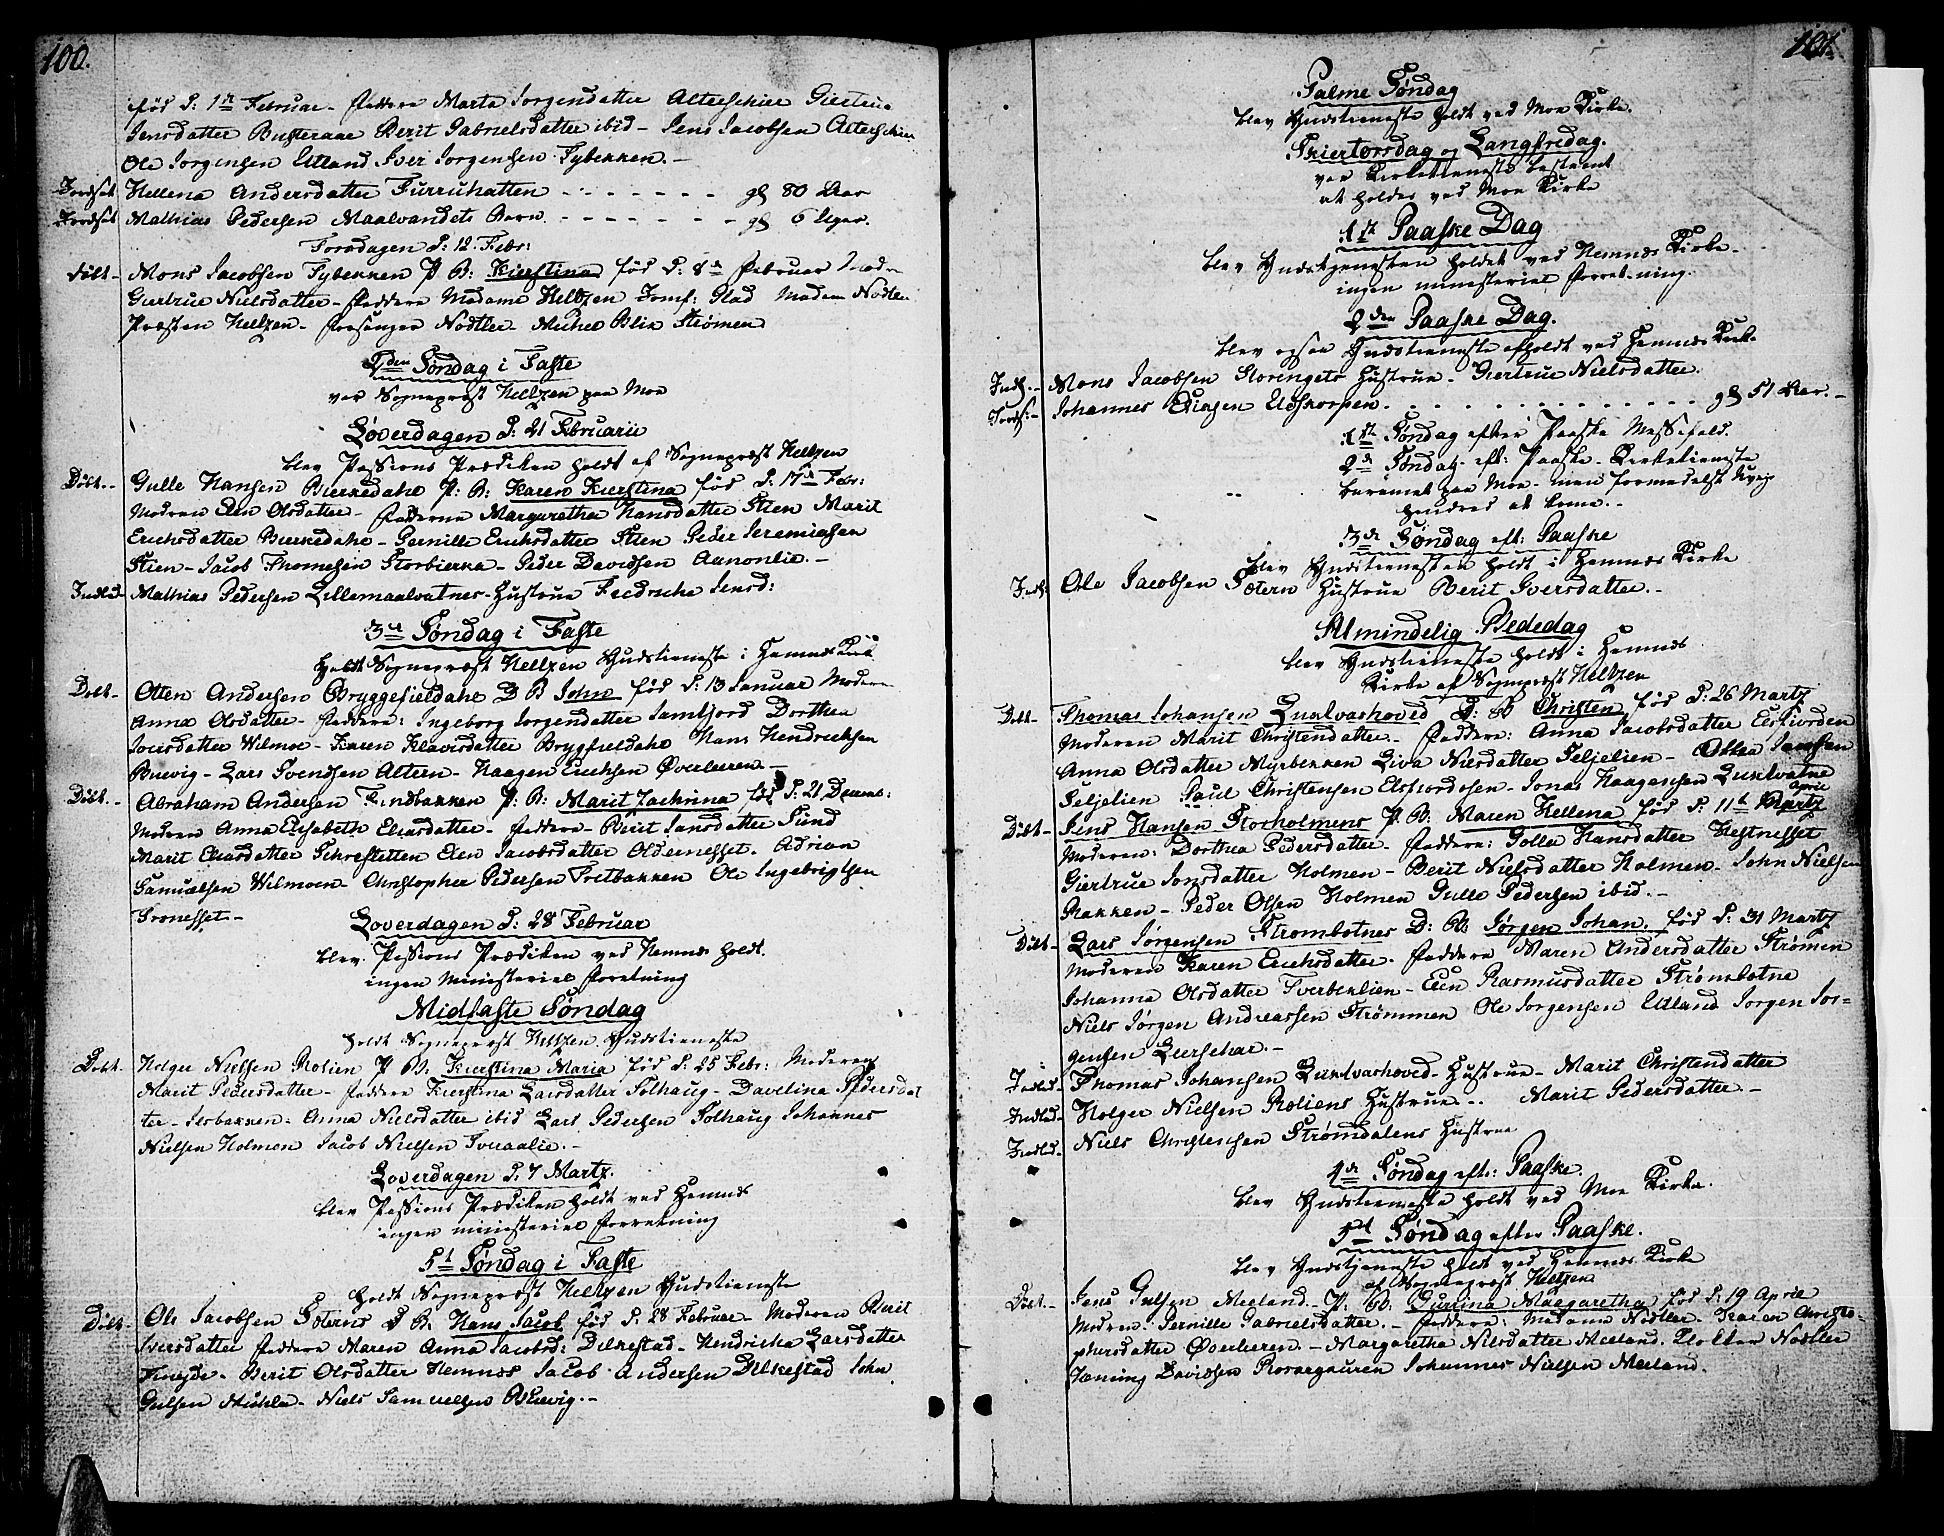 100.
fød d: 1ste Februar - Faddere Marta Jorgendatter Alterschier Giertrue
Jensdatter Busteraae Berit Gabrielsdatter ibid - Jens Jacobsen Alterschier
Ole Jorgensen Utland Iver Jorgensen Fybekken. -
Jordfæst Hellena Andersdatter Furruhatten - - - - - - gl 80 Aar
Jordfæst Mathias Pedersen Maalvandets Barn. - - - - - - gl 6 Uger.
Torsdagen d: 12. Febr:
Døbt - Mons Jacobsen Fybekken P. B: Kierstina fød d: 8de Februar Modr
Giertrue Nielsdatter - Faddere Madame Heltzen Jomf: Glad Madam Nodtler
Præsten Heltzen - Forsanger Nodtler - Michel Blix Strømen
2den Søndag i Faste
var Sognepræst Heltzen paa Moe
Løverdagen d: 21 Februarii
blev Passions Prædiken holdt af Sognepræst Heltzen
Døbt. - Gulle Hansen Bierkedahl P: B: Karen Kierstina fød d: 17de Febr:
Modren Elen Olsdatter - Fadderne Margaretha Hansdatter Stien Marit
Erichsdatter Bierkedahl - Pernille Erichsdatter Stien Peder Jeremiasen
Stien - Jacob Thomesen Storbierka - Peder Davidsen Aanonlie. -
Indled - Mathias Pedersen Lillemaalvatnes - Hustrue Fredriche Jensd:
3de Søndag i Faste
Holdt Sognepræst Heltzen Gudstieneste i Hemnæs Kirk
Døbt - Otten Andersen Bryggefieldahl D B John fød d: 13 Januar Modern
Anna Olsdatter - Faddere: Ingeborg Jorgendatter Jamtjord Dorthea
Joensdatter Wilmoe - Karen Klavisdatter Brygfieldahl Hans Hendrichsen
Buevig - Lars Svendsen Altern - Haagen Erichsen Øverleeren. -
Døbt. - Abraham Andersen Findbakken P. B: Marit Zachrina fød d: 21 Decemb:
Modren Anna Elisabeth Eliasdatter - Faddere - Berit Jansdatter Sund
Marit Eliasdatter Schrestetten Elen Jacobsdatter Oldernesset. Adrian
Samuelsen Wilmoen - Christopher Pedersen Tretbakken Ole Ingebrigtsen
Fronesset. -
Løverdagen d: 28 Februar
blev Passions Prædiken ved Hemnæs holdt.
ingen Ministeriel Forretning
Midfaste Søndag
holdt Sognepræst Heltzen Gudstieneste
Døbt. Helger Nielsen Røelien P B: Kierstina Maria fød d: 25 Febr: Moderen
Marit Pedersdatter - Faddere Kierstina Larsdatter Solhaug - Davelina Pedersdat
ter - Storbakken. Anna Nielsdatter ibid Lars Pedersen Solhaug Johannes
Nielsen Holmen Jacob Nielsen Sveraalie. -
Løverdagen d. 7 Martz.
blev Passions Prædiken holdt ved Hemnæs
ingen ministeriel Forretning
5te Søndag i Faste
Holdt Sognepræst Heltzen Gudstieneste
Døbt - Ole Jacobsen Sæterns D B: Hans Jacob fød d: 28 Februar - Moderen Berit
Iversdatter Faddere Maren Anna Jacobsd: Dilkestad - Hendricha Larsdatter
Fineyde - Berit Olsdatter Hemnæs Jacob Andersen Dilkestad John
Gulsen Mükle - Niels Samuelsen Buevig. -
101.
Palme Søndag
blev Gudstieneste holdt ved Moe Kirke.
Skiertorsdag og Langfredag.
var Kirketieneste bestemt
at holdes ved Moe Kirke
1ste Paaske Dag
blev Gudstjenesten holdet ved Hemnæs Kirke -
ingen ministeriel Forretning.
2den Paaske Dag.
blev ogsaa Gudstieneste afholdt ved Hemnæs Kirk.
Indl. - Mons Jacobsen Storengets Hustrue - Giertrue Nielsdatter.
Jordf: - Johannes Elingen Elsskorpen. - - - - - - - - gl 51 Aar. -
1ste Søndag efter Paaske Messefald.
2de Søndag eft: Paaske - Kirketieneste
beramet paa Moe - men formedelst Uvejr
hendred at kome. -
3de Søndag eft: Paaske
blev Gudstienesten holdt i Hemnæs Kirke
Indl: Ole Jacobsen Sætern Hustrue Berit Iversdatter. -
Almindelig Bededag
blev Gudstieneste holdt i Hemnæs
Kirke af Sognepræst Heltzen
Døbt - Thomas Johansen Luktvashoved D: B Christen fød d: 26 Martz
Moderen Marit Christendatter - Faddere: Anna Jacobsdatter Elsfiorden
Anna Olsdatter Myrbekken Liva Nielsdatter Seljelien - Ottea Jamsen
Seljelien Paul Christensen Elsfiordosen - Jonas Haagensen Luktvatne
Døbt - Jens Hansen Storholmens P. B: Maren Hellena fød d. 11te April
Moderen: Dorthea Pedersdatter. Faddere: Golla Hansdatter Hestnesset
Giertrue Jonsdatter Holmen - Berit Nielsdatter Holmen. John Nielsen
Bakken - Peder Olsen Holmen Gulle Pedersen ibid. -
Døbt - Lars Jørgensen Strombotnes D: B: Jørgen Johan. fød d: 31 Martz
Moderen Karen Erichsdatter. Faddere Maren Andersdatter Strømen
Johanna Olsdatter Sverbenlien - Elen Rasmusdatter Strømbotne
Niels Jørgen Andreassen Strømmen Ole Jorgensen Utland Jorgen Jor=
gensen Leerschar. -
Indled. Thomas Johansen Luktvashoved - Hustrue - Marit Christendatter
Indled. Holger Nielsen Røeliens Hustrue. . Marit Pedersdatter. -
Indled. Niels Christensen Strømdalens Hustrue
4de Søndag eft: Paaske.
blev Gudstieneste holdt ved Moe Kirke.
5te Søndag efter Paaske.
blev Gudstjeneste holdt ved Hemnæs Kirke
af Sognepræst Heltzen
Døbt. - Jens Gulsen Meeland - P. B. Gurina Margaretha fød d: 19 April
Modren. Pernille Gabrielsdatter. - Faddere: Madame Nodtler - Karen Christo
phersdatter Øverleeren. - Margaretha Nilsdatter Meeland. Klokker Nodtler
Hening Davidsen Rosvergauren Johannes Nielsen Meeland.